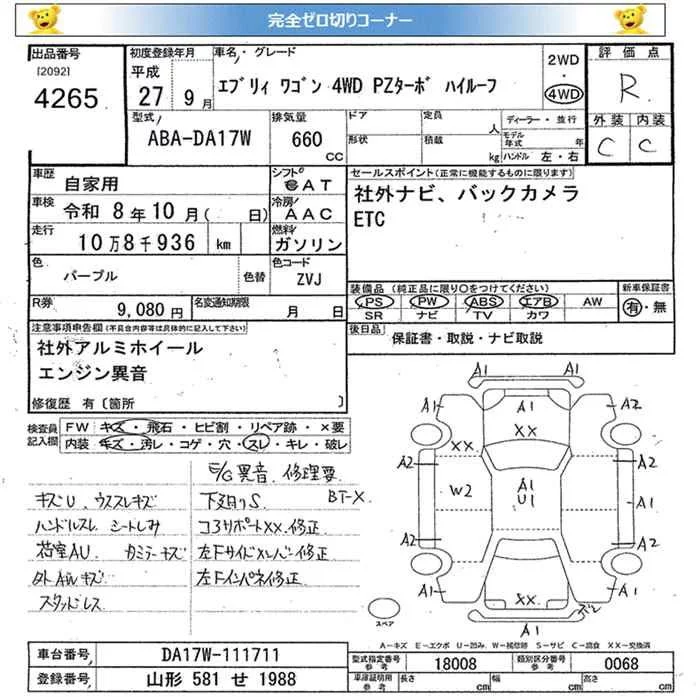 完全ゼロ切りコーナー
出品番号
[2092]
4265
初度登録年月
平成
27 9月
車名・グレード
エブリィ ワゴン 4WD PZターボ ハイルーフ
2WD
・
4WD
評価点
R
型式
ABA-DA17W
排気量
660
CC
ドア
定員
人
形状
積載
kg
ディーラー・並行
モデル年式 年
ハンドル 左・右
外装 内装
C C
車歴
自家用
シフト
AT
車検
令和 8年10月( 日)
冷房
AAC
走行
10万8千936 km
燃料
ガソリン
色
パープル
色替
色コード
ZVJ
R券
9,080円
名変通知期限
月 日
セールスポイント(正常に機能するものに限ります)
社外ナビ、バックカメラ
ETC
装備品(純正品に限り○をつけてください)
PS PW ABS エアB AW
SR ナビ TV カワ
新車保証書
有・無
後日品
保証書・取説・ナビ取説
注意事項申告欄(不具合内容等は具体的に記入して下さい)
社外アルミホイール
エンジン異音
修復歴 有〔箇所 〕
検査員記入欄
FW キズ・飛石・ヒビ割・リペア跡・×要
内装 キズ・汚レ・コゲ・穴・スレ・キレ・破レ
E/G異音、修理要
BT-X
キズU、ウススレキズ
ハンドルスレ シートしみ
荷室AU、
外AWキズ
スタッドレス
下廻りS
コアサポートXX、修正
左Fサイドメンバー修正
左Fインパネ修正
A1
A1
A1
A2
XX
XX
A2
A2
W2
A1
U1
A2
A2
XX
A1
A1
A1
スペア
A－キズ E－エクボ U－凹み W－補修跡 S－サビ C－腐食 XX－交換済
車台番号
DA17W-111711
登録番号
山形 581 せ 1988
型式指定番号
参考
18008
類別区分番号
参考
0068
車庫証明用
参考
長さ cm
幅 cm
高さ cm